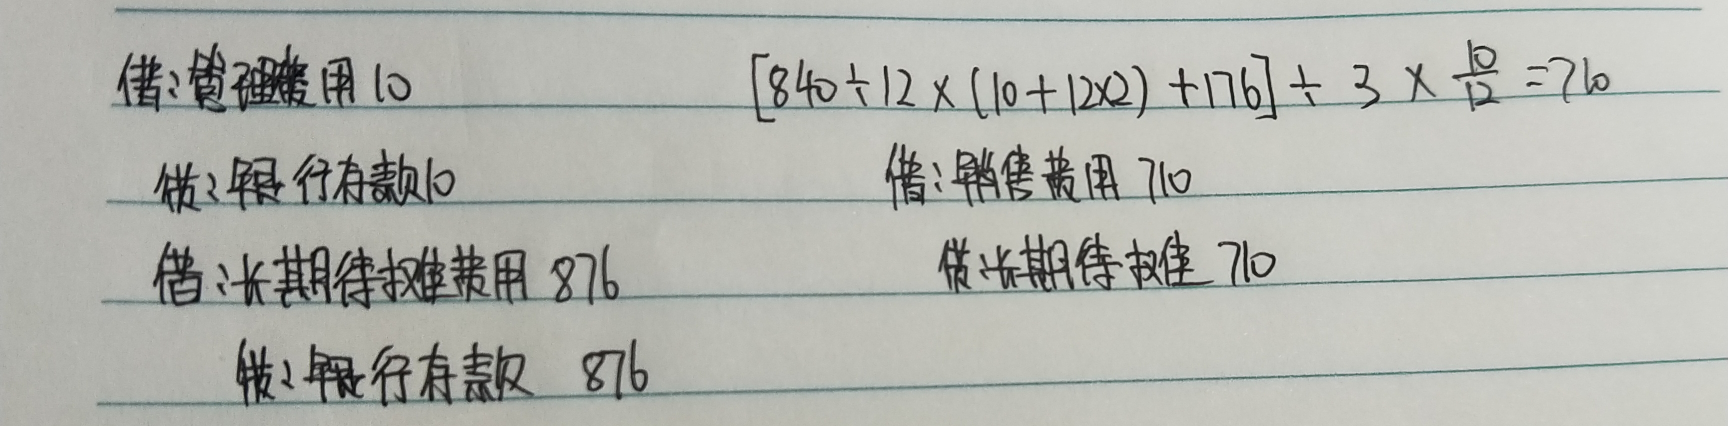 借：管理费用 10
[840÷12×(10+12×2)+176]÷3×10/12=710
贷：银行存款10
借：销售费用 710
借：长期待摊费用 876
贷：长期待摊 710
贷：银行存款 876